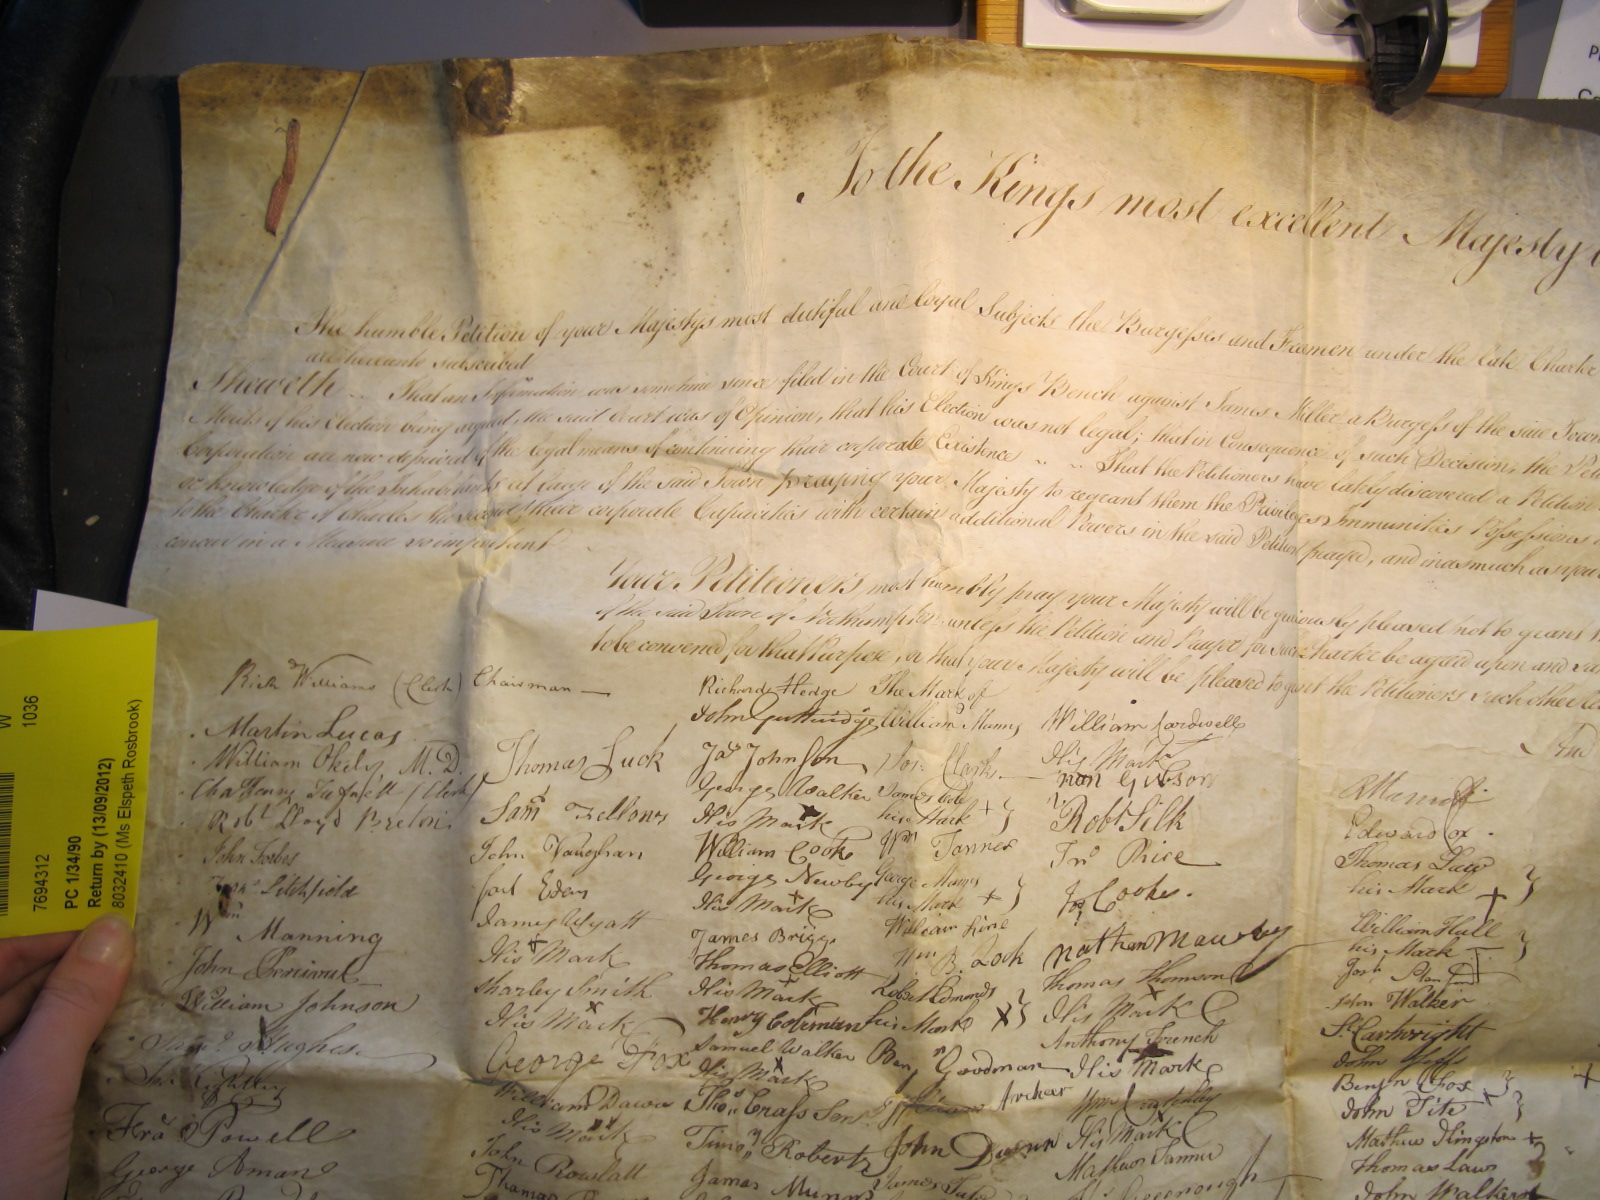 To the Kings most excellent Majesty
The humble Petition of your Majestys most dutiful and loyal Subjects the Burgesses and Freemen under the late Charter
are hereunto subscribed
Sheweth .. That an Information was sometime since filed in the Court of Kings Bench against James Miller a Burgess of the said Town
Merits of his Election being argued, the said Court was of Opinion, that his Election was not legal; that in Consequence of such Decision, the
Corporation are now deprived of the legal means of continuing their corporate Existence .. .. That the Petitioners have lately discovered a Petition
or knowledge of the Inhabitants at large of the said Town praying your Majesty to regrant them the Privileges Immunities Possessions
to the Charter of Charles the second their corporate Capacities with certain additional Powers in the said Petition prayed, and inasmuch as your
concur in a Measure so important
Your Petitioners most humbly pray your Majesty will be graciously pleased not to grant
of the said Town of Northampton unless the Petition and Prayer for such Charter be agreed upon and
to be convened for that Purpose, or that your Majesty will be pleased to grant the Petitioners such other
And
Richd Williams (Clerk) Chairman
Martin Lucas
William Okely M.D.
Cha Henry Tufnell (Clerk)
Robt Lloyd Breton
John Forbes
Litchfield
Wm Manning
John Percival
William Johnson
Hughes
Fra Powell
George Aman
Thomas Luck
Saml Fellows
John Vaughan
James Wyatt
His Mark
Charley Smith
His Mark
George Fox
William Dawes
His Mark
John Rowlatt
Thomas
Richard Hedge
John Gutteridge
Jas Johnson
George Walker
His Mark
William Cooke
George Newby
His Mark
James Brigg
Thomas Elliott
His Mark
Henry Coleman
Samuel Walker
His Mark
Thos Crass Senr
Timoy Roberts
James Munn
The Mark of
William Munns
Clark
James
his Mark +
Wm Tanner
George Munns
his Mark +
William Line
Wm B. Look
Robert Edmonds
his Mark X
Benjn Goodman
Archar
John Dunn
James
William Cardwell
His Mark
Gibson
Robt Silk
Jno Price
Js Cooke.
Nathan Mawby
Thomas Thomson
His Mark
Anthony French
His Mark
His Mark
Matthew Tanner
Greenough
Edward Cox.
Thomas Law
his Mark +
William Hull
his Mark
John Walker
St Cartwright
John
Benjn Cox
John Tite +
Mathew Kingston +
Thomas Laws
John Walker
W
1036
7694312
PC 1/34/90
Return by (13/09/2012)
8032410 (Ms Elspeth Rosbrook)